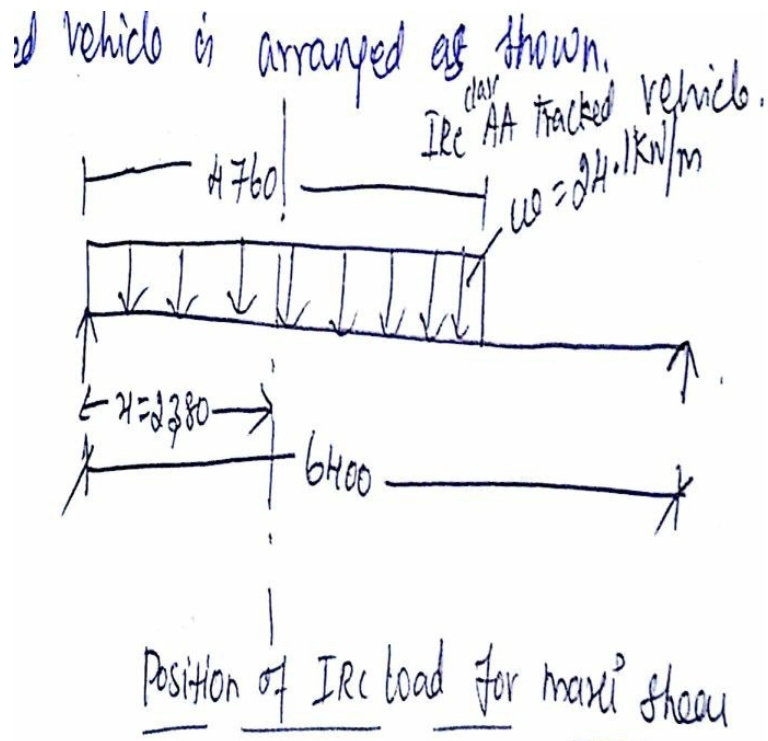 ed vehicle is arranged as shown.
IRC class AA Tracked vehicle.
4760
w = 24.1kN/m
x=2380
6400
Position of IRC load for maxi shear